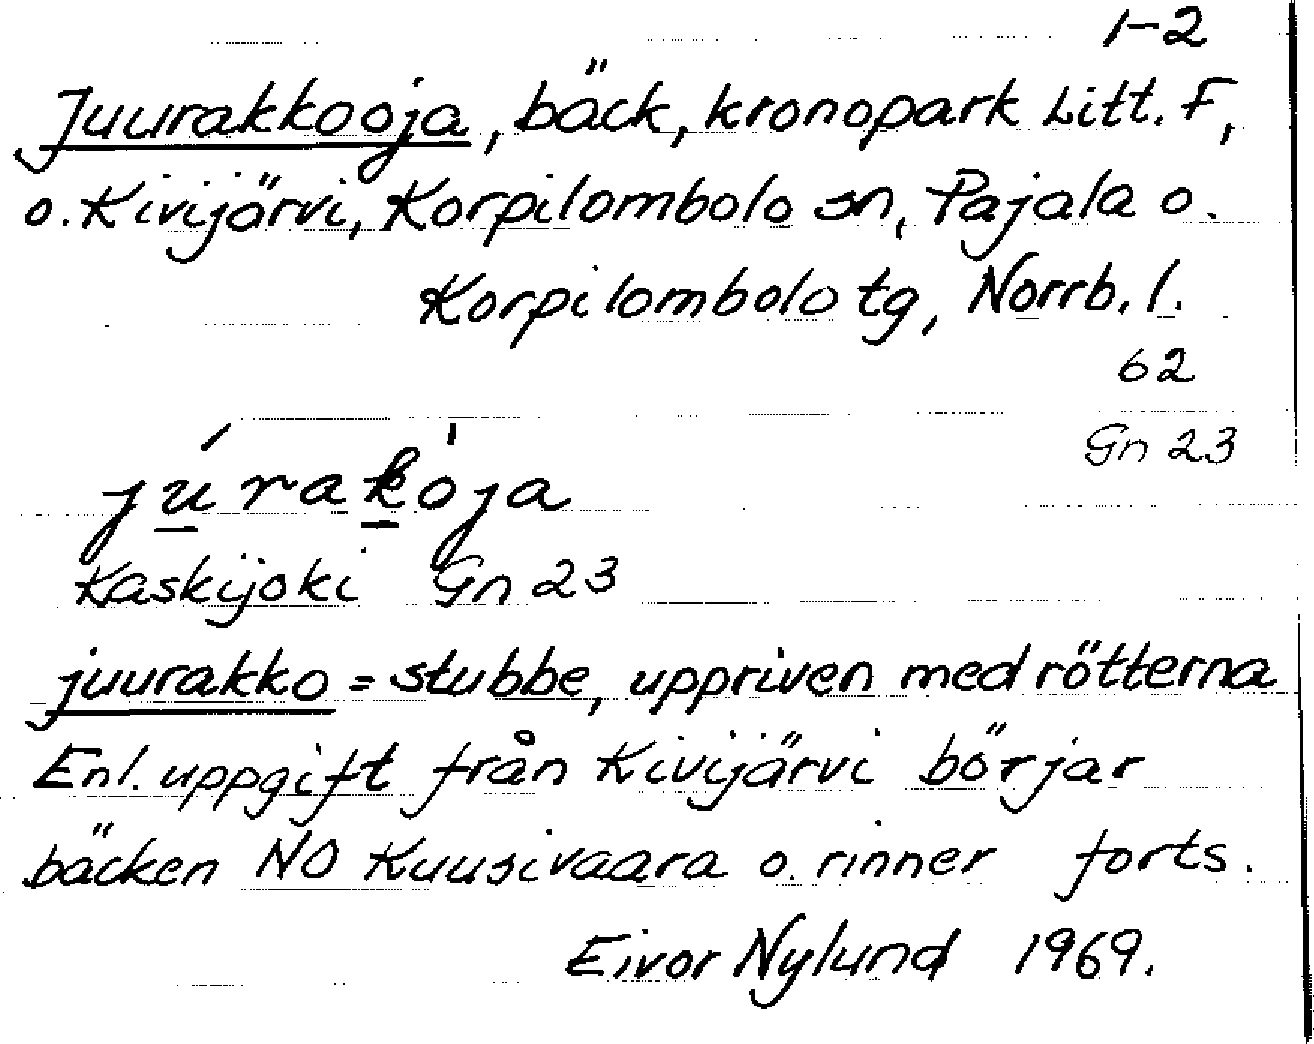 1-2
Juurakkooja, bäck, kronopark Litt. F,
o. Kivijärvi, Korpilombolo sn, Pajala o.
Korpilombolo tg, Norrb. l.
62
Gn 23
júrakòja
Kaskijoki Gn 23
juurakko = stubbe, uppriven med rötterna
Enl. uppgift från Kivijärvi börjar
bäcken NO Kuusivaara o. rinner forts.
Eivor Nylund 1969.